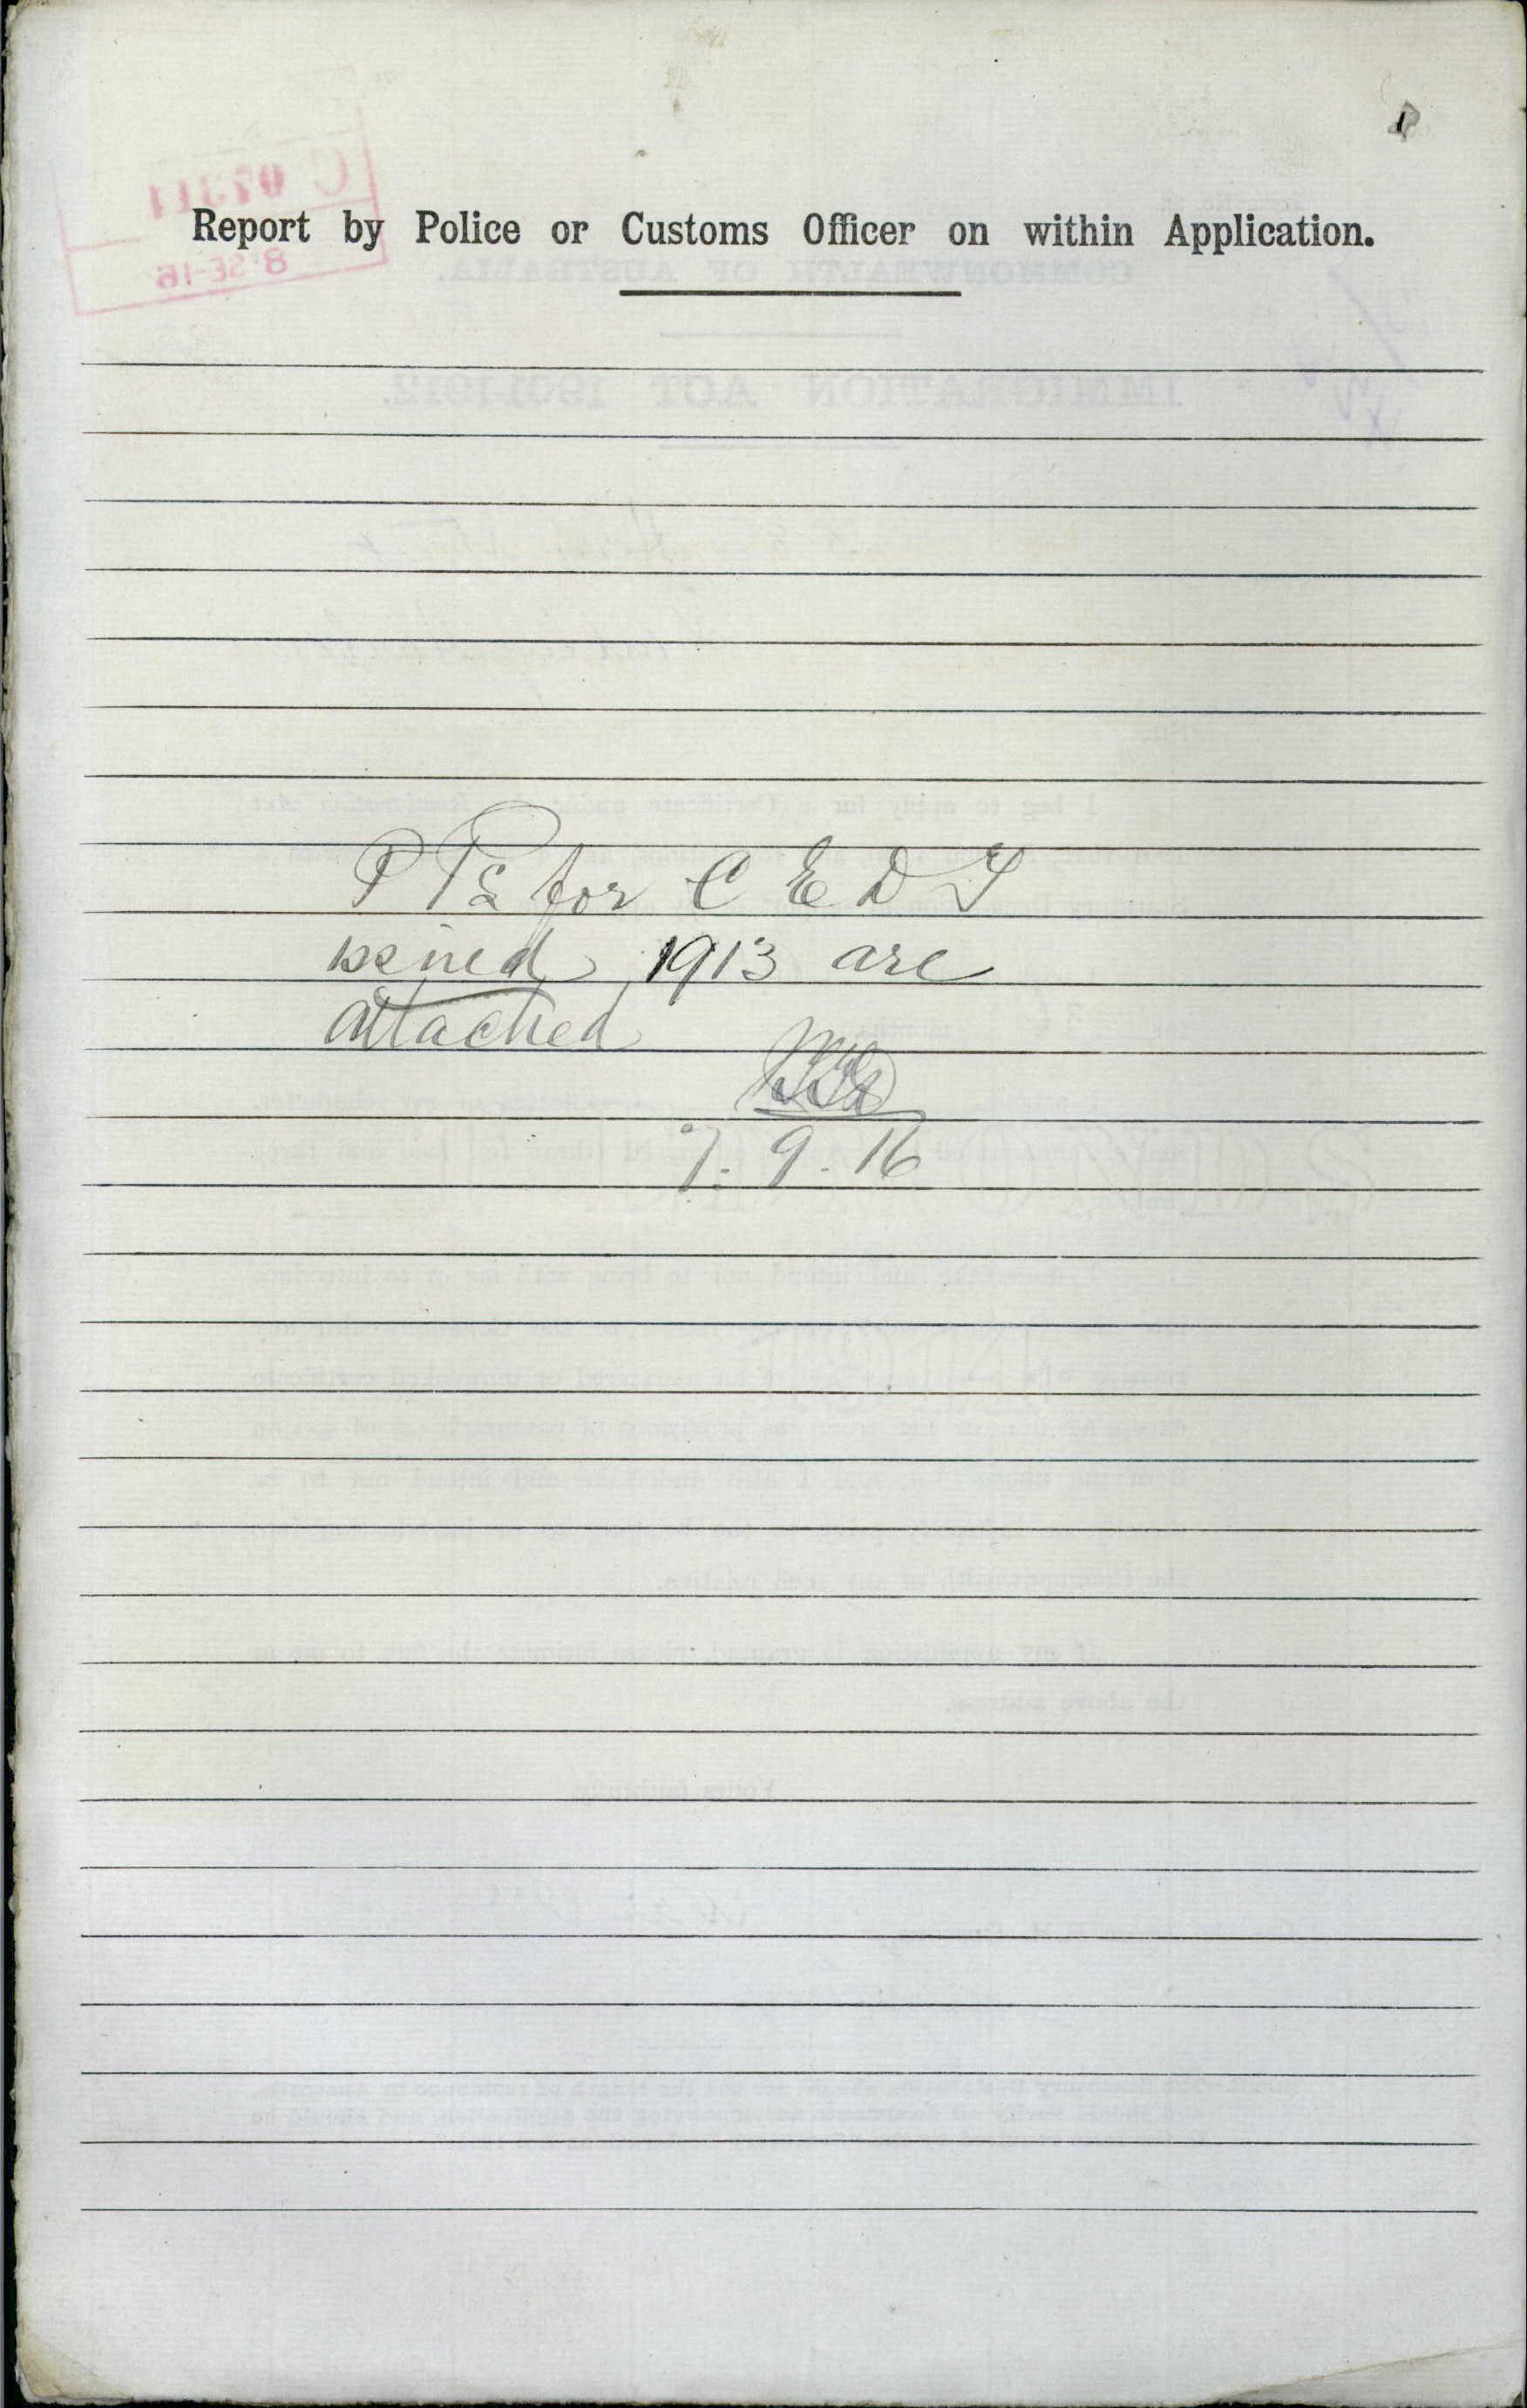 Report by Police or Customs Officer on within Application.
P Ps for C E D T
issued 1913 are
attached
7.9.16